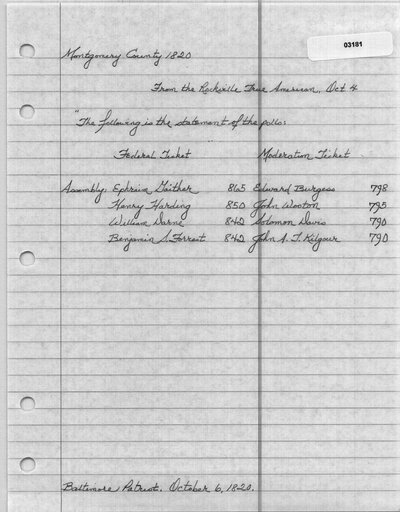 03181
Montgomery County 1820
From the Rockville True American, Oct 4
"The following is the statement of the polls:
Federal Ticket Moderation Ticket
Assembly, Ephraim Gaither 865 Edward Burgess 798
Henry Harding 850 John Wooton 795
William Darne 842 Solomon Davis 790
Benjamin S. Forrest 842 John A. T. Kilgour 790
Baltimore Patriot. October 6, 1820.